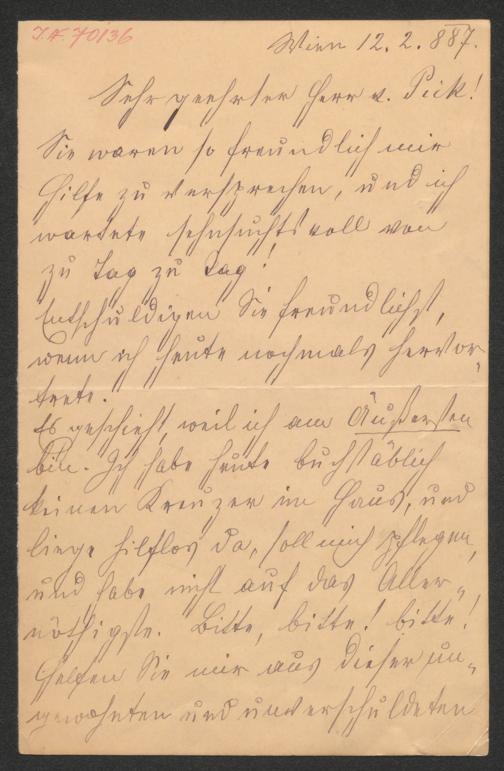 I.N. 70136
Wien 12. 2. 887.
Sehr geehrter Herr v. Pick!
Sie waren so freundlich mir
Hilfe zu versprechen, und ich
wartete sehnsuchtsvoll von
zu Tag zu Tag!
Entschuldigen Sie freundlichst,
wenn ich heute nochmals hervor-
trete.
Es geschieht, weil ich am Äußersten
bin. Ich habe heute buchstäblich
keinen Kreuzer im Haus, und
liege hilflos da, soll mich pflegen,
und habe nicht auf das Aller-
nöthigste. Bitte, bitte! bitte!
Helfen Sie mir aus dieser un-
gewohnten und unverschuldeten